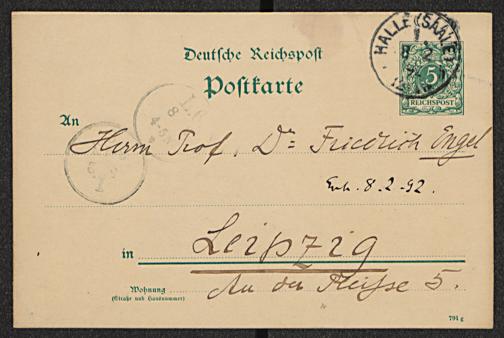 Deutsche Reichspost
Postkarte
HALLE (SAALE)
8 2
5
REICHSPOST
An
Herrn Prof. Dr Friedrich Engel
Enh. 8-2-92.
in Leipzig
Wohnung An der Pleisse 5.
(Straße und Hausnummer)
791 g